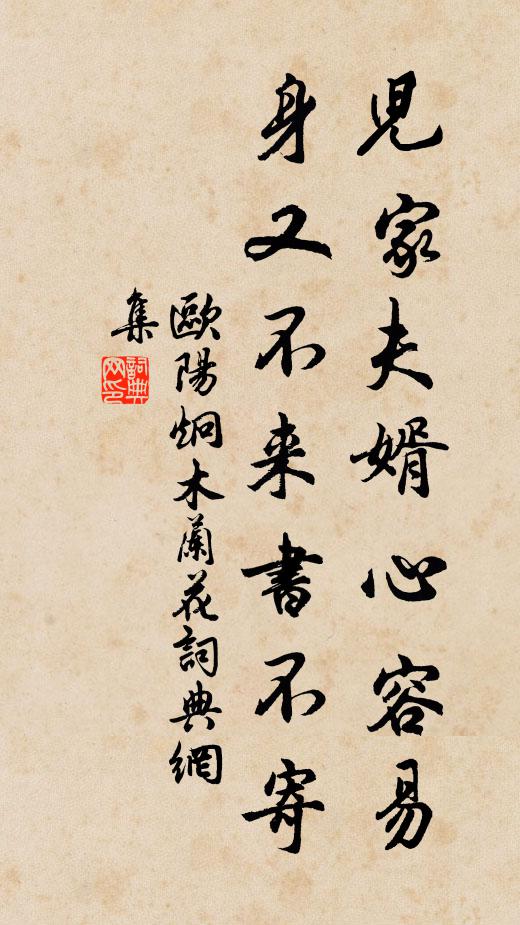 児家夫婿心容易
身又不来書不寄
歐陽炯木蘭花詞典網
集
詞典网印